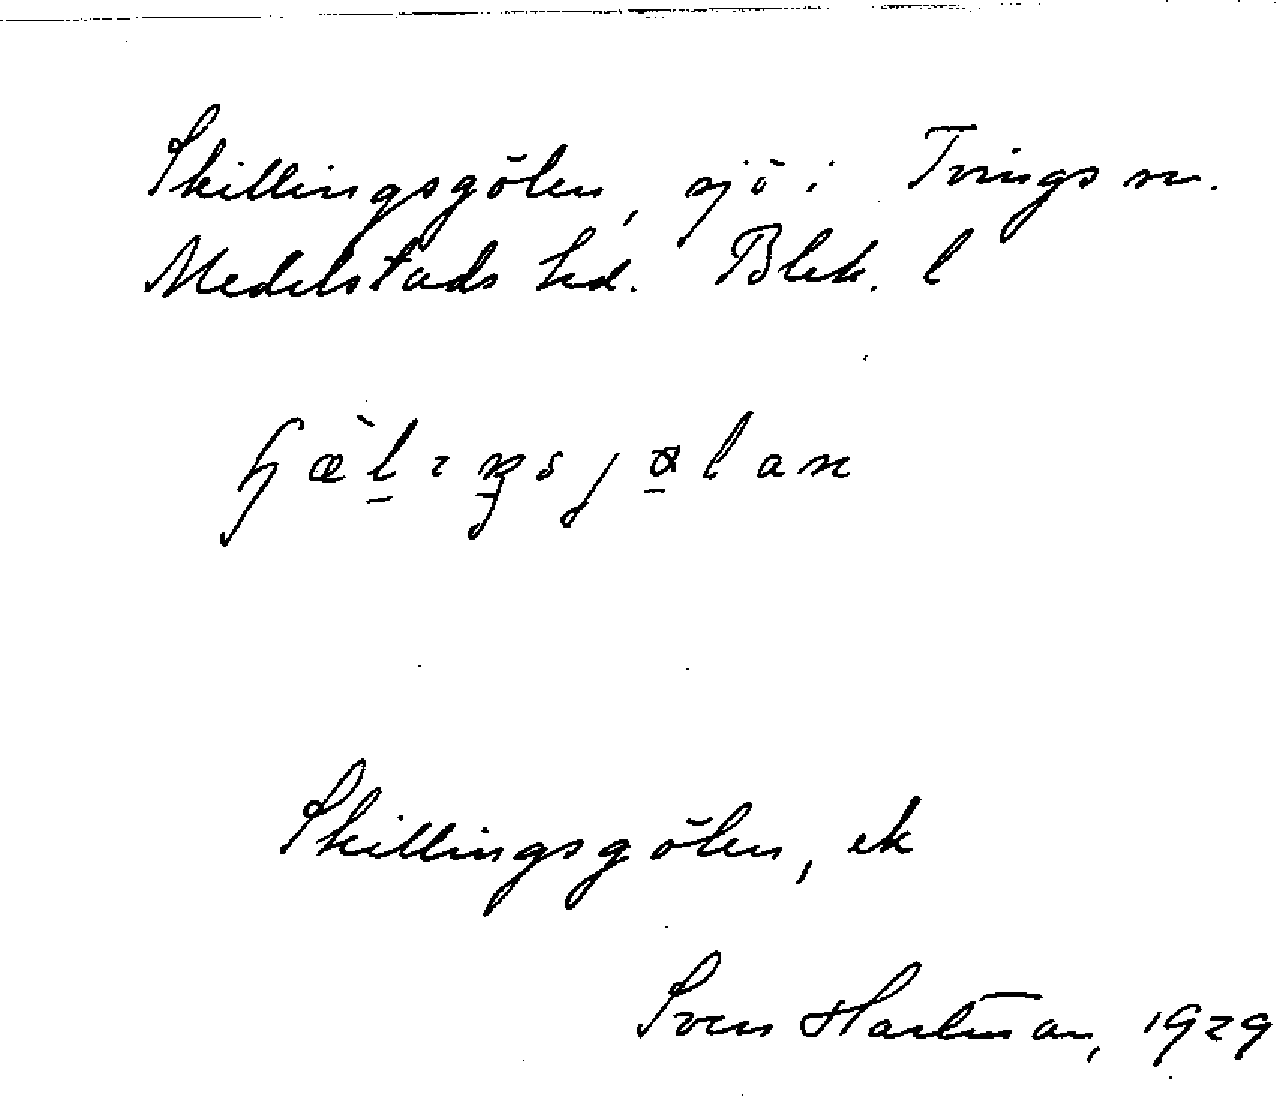 Skillingsgölen, sjö i Tvings sn.
Medelstads hd. Blek. l
Skillingsgölen, ek
Sven Hartman, 1929